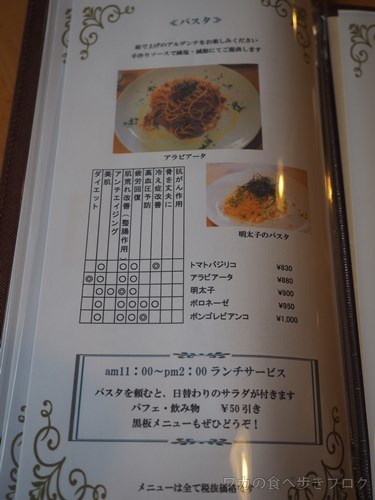 ≪パスタ≫
茹で上げのアルデンテをお楽しみください
手作りソースで減塩・減糖にてご提供します
アラビアータ
明太子のパスタ
ダイエット
美肌
アンチエイジング
肌荒れ改善(整腸作用)
疲労回復
高血圧予防
冷え症改善
骨を丈夫に
抗がん作用
トマトバジリコ ¥830
アラビアータ ¥880
明太子 ¥900
ボロネーゼ ¥950
ボンゴレビアンコ ¥1,000
am11:00～pm2:00 ランチサービス
パスタを頼むと、日替わりのサラダが付きます
パフェ・飲み物 ¥50引き
黒板メニューもぜひどうぞ!
メニューは全て税抜価格
ワカの食べ歩きブログ